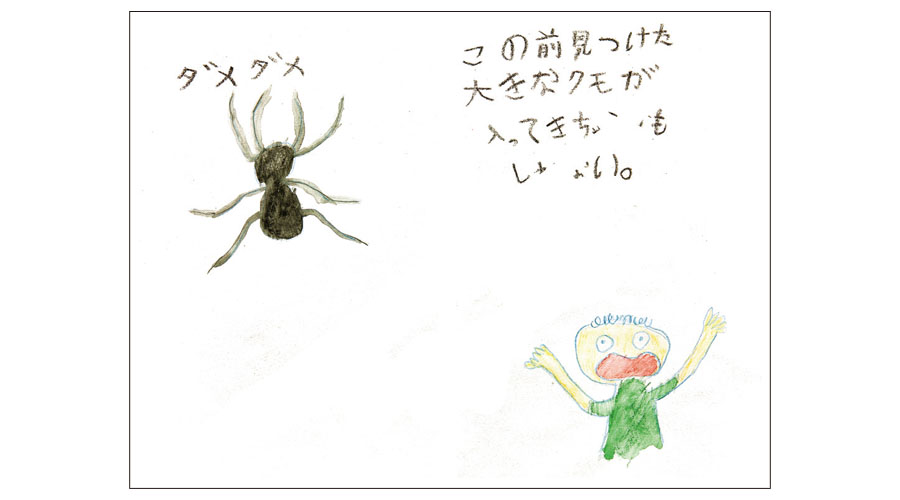 ダメダメ
この前見つけた
大きなクモが
入ってきちゃうかも
しれない。